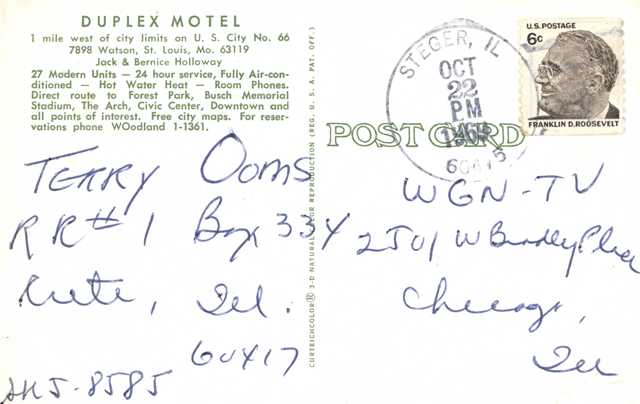 DUPLEX MOTEL
1 mile west of city limits on U. S. City No. 66
7898 Watson, St. Louis, Mo. 63119
Jack & Bernice Holloway
27 Modern Units — 24 hour service, Fully Air-con-
ditioned — Hot Water Heat — Room Phones.
Direct route to Forest Park, Busch Memorial
Stadium, The Arch, Civic Center, Downtown and
all points of interest. Free city maps. For reser-
vations phone WOodland 1-1361.
CURTEICHCOLOR® 3-D NATURAL COLOR REPRODUCTION (REG. U. S. A. PAT. OFF.)
POST CARD
STEGER, IL
OCT
22
PM
U.S. POSTAGE
6c
FRANKLIN D. ROOSEVELT
Terry Ooms
RR#1 Box 334
Crete, Ill.
60417
8585
WGN-TV
2501 W Bradley Place
Chicago,
Ill